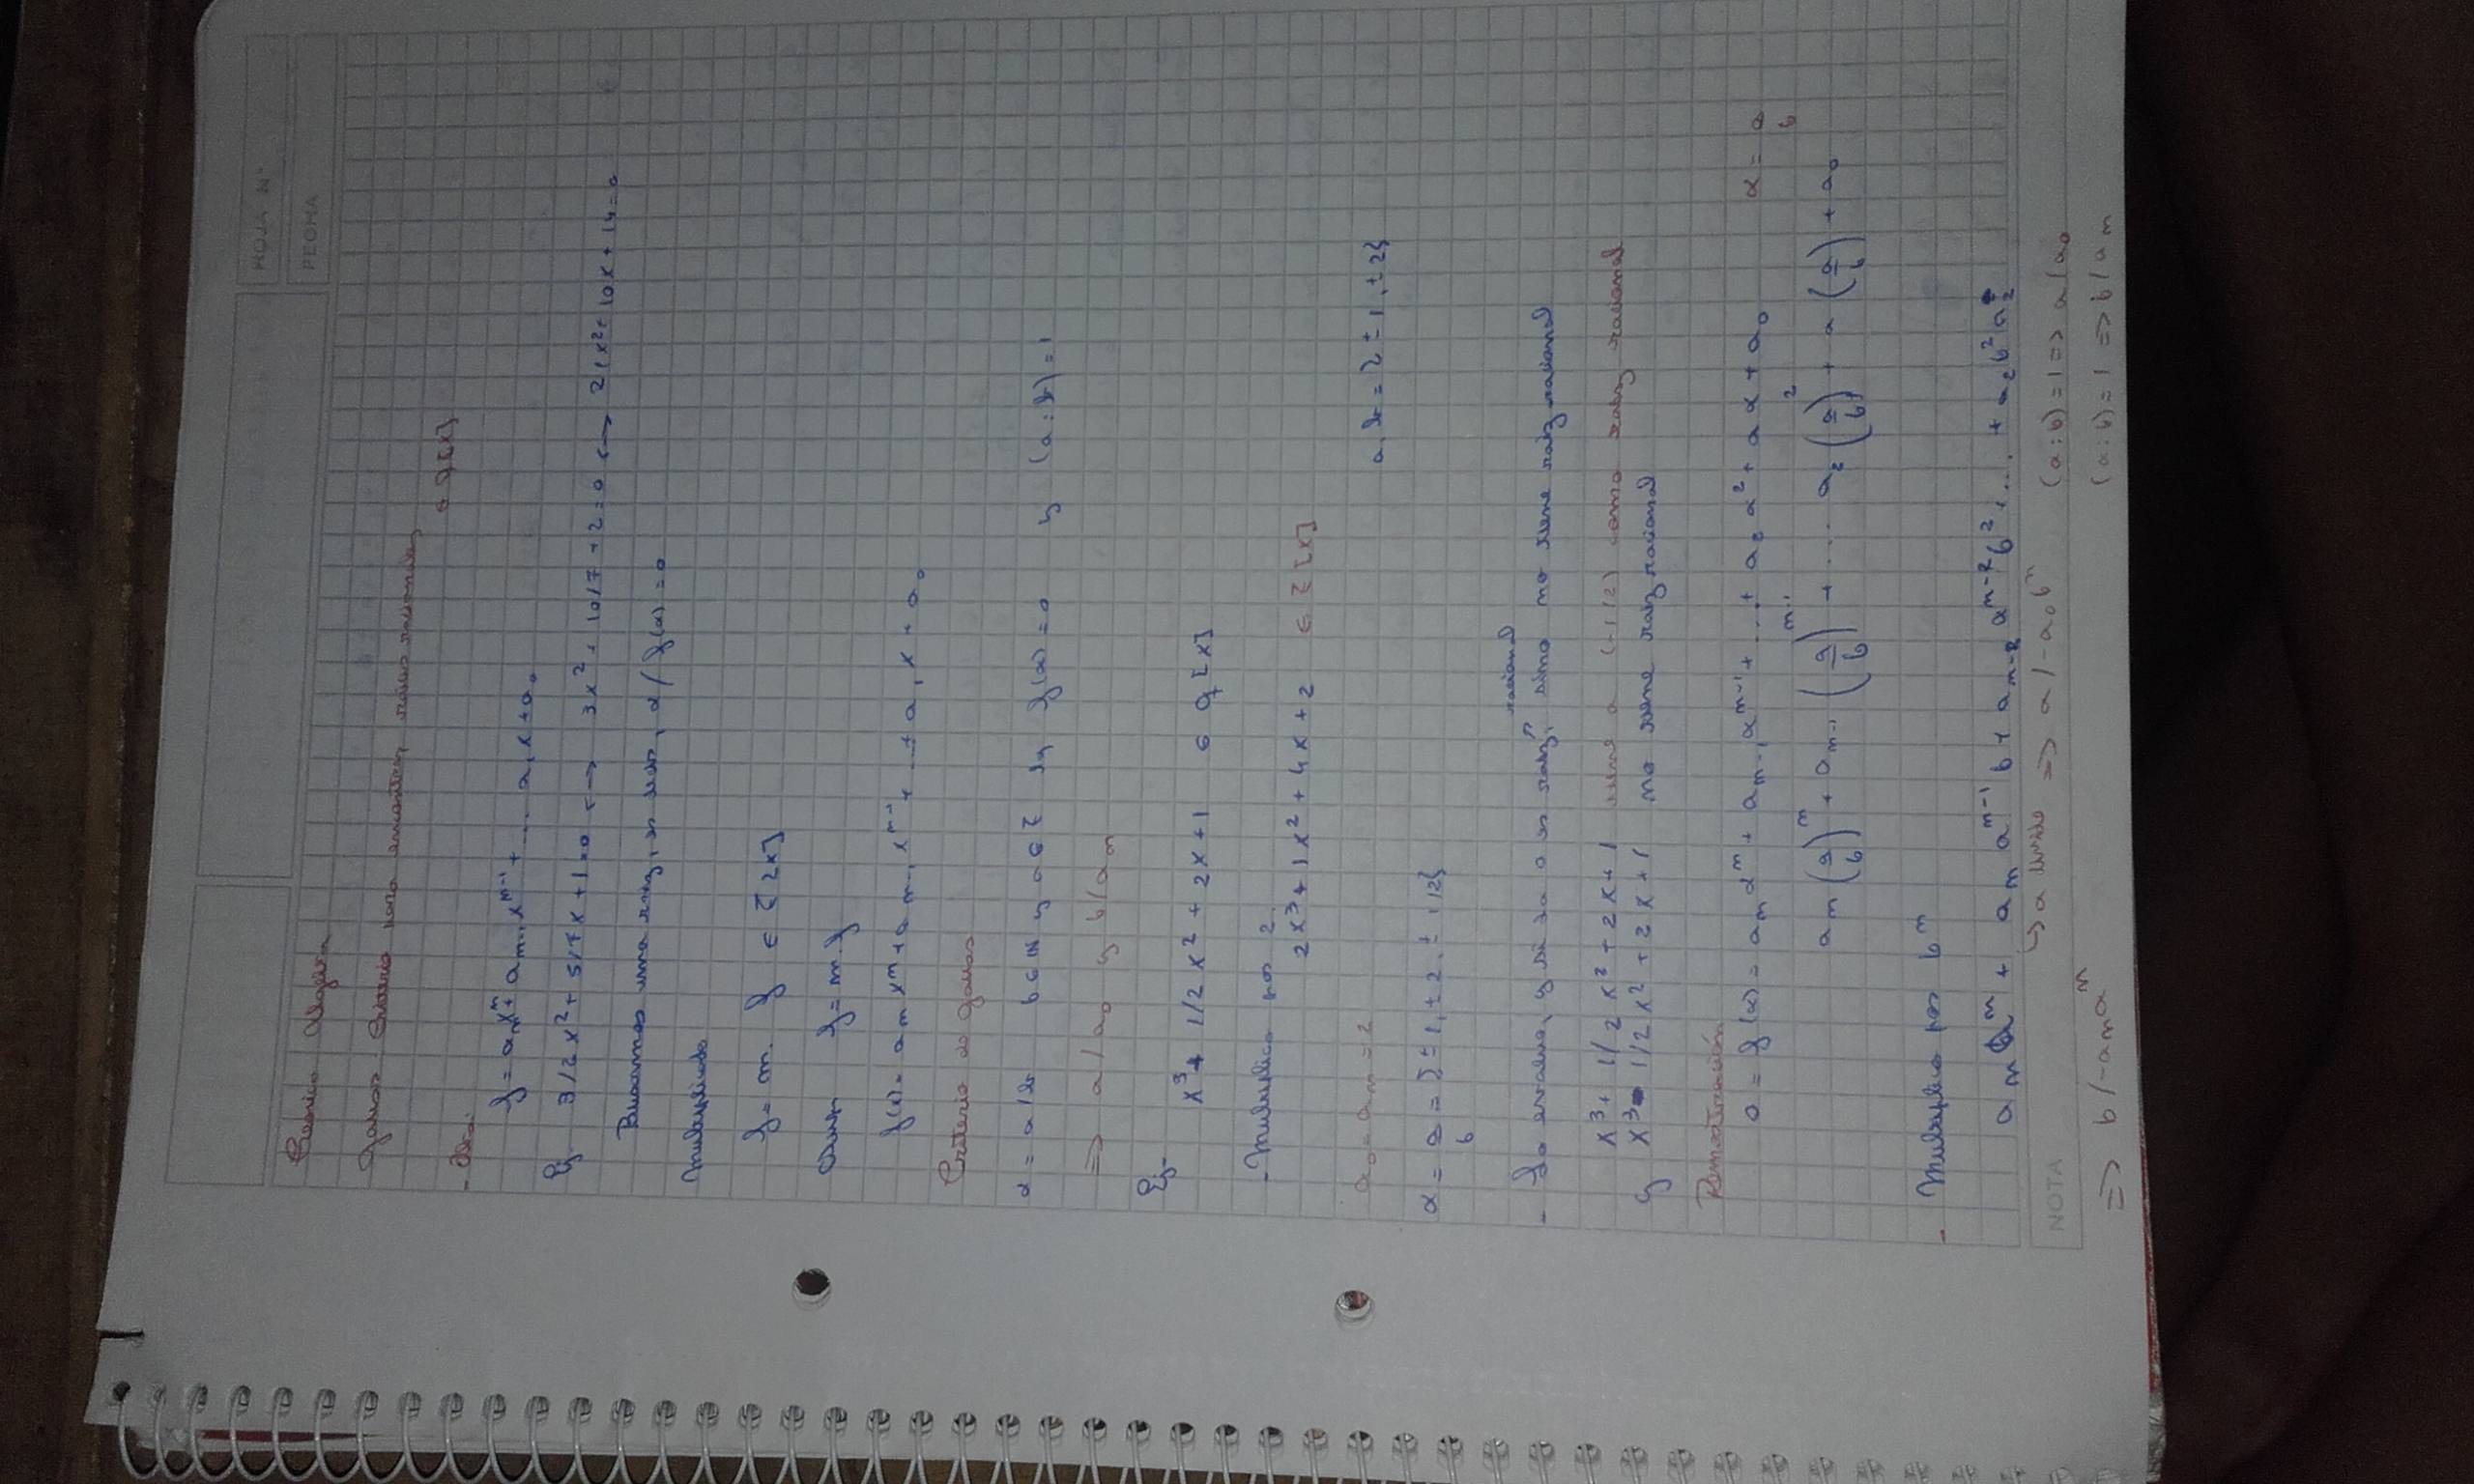 HOJA N°
FECHA
Teorico Algebra
Gauss: Criterio para encontrar raices racionales
∈ Q[X]
- Idea:
f = aₙxⁿ + aₙ₋₁xⁿ⁻¹ + ... a₁x + a₀
Ej. 3/2x² + 5/7x + 1 = 0 <-> 3x² + 10/7 + 2 = 0 <-> 21x² + 10x + 14 = 0
Buscamos una raiz, es decir, α / f(α) = 0
Multiplicado
f = m. f ∈ Z[X]
f = m.f
f(x) = aₙxⁿ + aₙ₋₁xⁿ⁻¹ + ... + a₁x + a₀
Criterio de Gauss
α = a/b b ∈ N y a ∈ Z tq f(α) = 0 y (a:b) = 1
=> a/a₀ y b/aₙ
Ej-
x³ + 1/2x² + 2x + 1 ∈ Q[X]
- Multiplico por 2.
2x³ + 1x² + 4x + 2 ∈ Z[X]
a₀ = aₙ = 2 a, b = {±1, ±2}
α = a/b = {±1, ±2, ±1/2}
racional
- Lo evaluo, y si da 0 es raiz, sino no tiene raiz racional
x³ + 1/2x² + 2x + 1 tiene a (-1/2) como raiz racional
y x³ - 1/2x² + 2x + 1 no tiene raiz racional
Demostración
0 = f(α) = aₙαⁿ + aₙ₋₁αⁿ⁻¹ + ... + a₂α² + aα + a₀ α = a/b
aₙ(a/b)ⁿ + aₙ₋₁(a/b)ⁿ⁻¹ + ... a₂(a/b)² + a(a/b) + a₀
- Multiplico por bⁿ
aₙaⁿ + aₙaⁿ⁻¹b + aₙ₋₂aⁿ⁻²b² + ... + a₂b²
NOTA
↳ a divide => a/-a₀bⁿ (a:b) = 1 => a/a₀
=> b/-aₙaⁿ (a:b) = 1 => b/aₙ